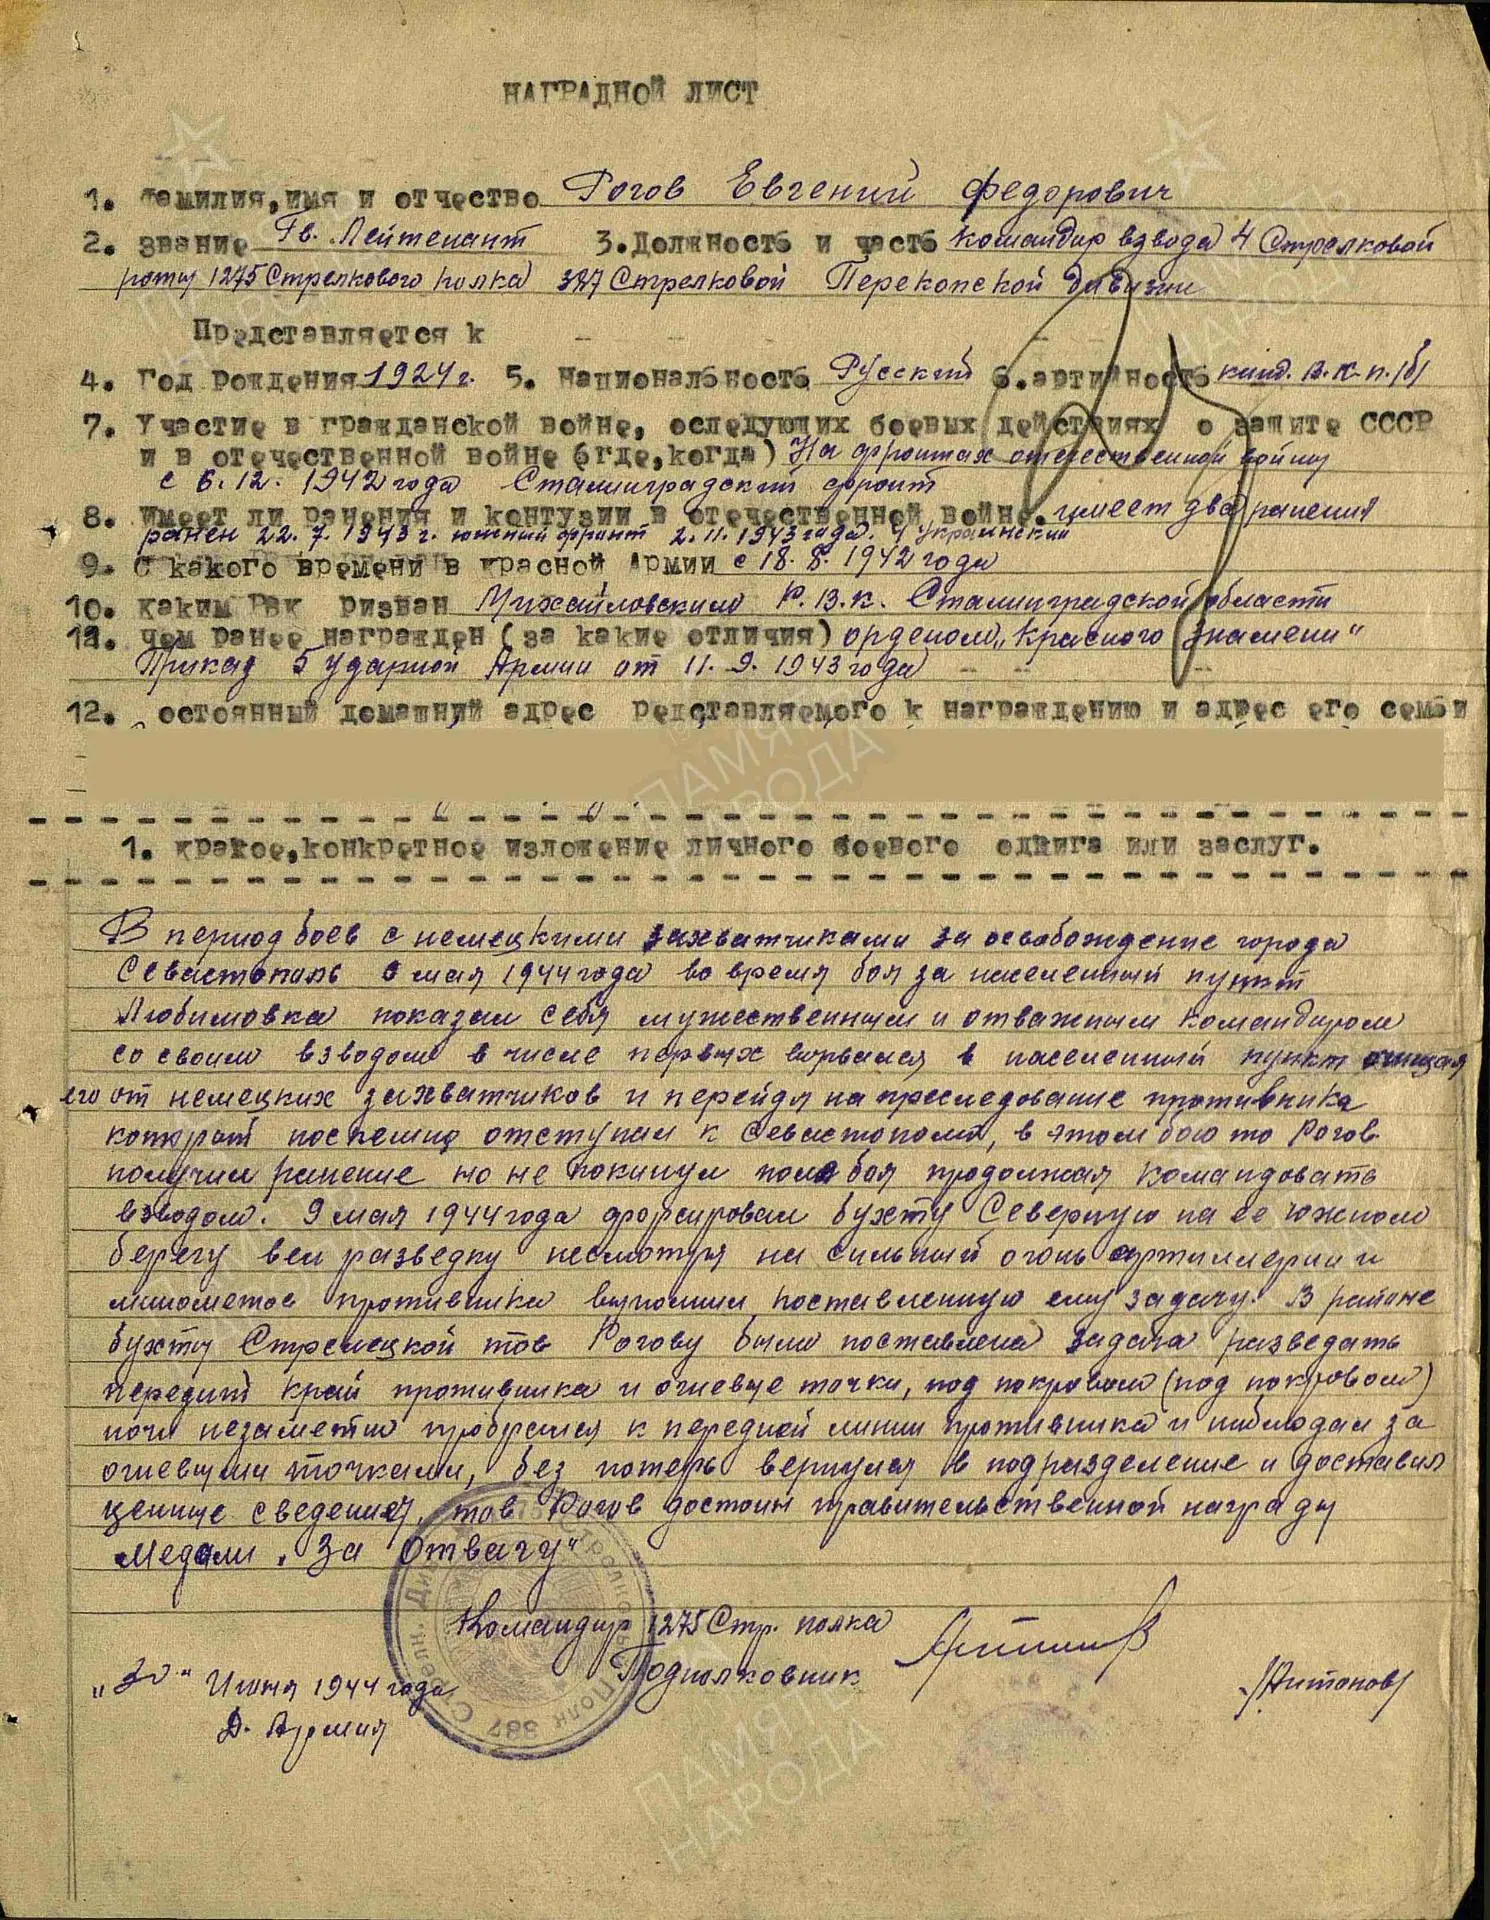 НАГРАДНОЙ ЛИСТ
1. Фамилия, имя и отчество Рогов Евгений Федорович
2. звание Гв. Лейтенант 3. Должность и часть командир взвода 4 Стрелковой
роты 1275 Стрелкового полка 387 Стрелковой Перекопской дивизии
Представляется к
4. Год рождения 1924 г. 5. Национальность Русский 6. артийность канд. В.К.П./б/
7. Участие в гражданской войне, оследующих боевых действиях о защите СССР
и в отечественной войне (где, когда) На фронтах отечественной войны
с 6.12.1942 года Сталинградский фронт
8. имеет ли ранения и контузии в отечественной войне. имеет два ранения
ранен 22.7.1943 г. южный фронт 2.11.1943 года. 4 Украинский
9. С какого времени в красной Армии с 18.8.1942 года
10. каким Рвк ризван Михайловским Р.В.К. Сталинградской области
11. чем ранее награжден (за какие отличия) орденом „Красного Знамени"
Приказ 5 ударной Армии от 11.9.1943 года
12. остоянный домашний адрес редставляемого к награждению и адрес его семьи
1. кракое, конкретное изложение личного боевого одвига или заслуг.
В период боев с немецкими захватчиками за освобождение города
Севастополь мая 1944 года во время боя за населенный пункт
Любимовка показал себя мужественным и отважным командиром
со своим взводом в числе первых ворвался в населенный пункт очищая
его от немецких захватчиков и перейдя на преследование противника
который поспешно отступал к Севастополю, в этом бою то Рогов
получил ранение но не покинул поля боя продолжая командовать
взводом. 9 мая 1944 года форсировал бухту Северную на ее южном
берегу вел разведку несмотря на сильный огонь артиллерии и
минометов противника выполнил поставленную ему задачу. В районе
бухты Стрелецкой тов Рогову была поставлена задача разведать
передний край противника и огневые точки, под покровом (под покровом)
ночи незаметно пробрался к передней линии противника и наблюдал за
огневыми точками, без потерь вернулся в подразделение и доставил
ценные сведения, тов Рогов достоин правительственной награды
Медали „За Отвагу"
Командир 1275 Стр. полка
Подполковник /Антонов/
„30" Июня 1944 года
Д. Армия
ПАМЯТЬ
НАРОДА